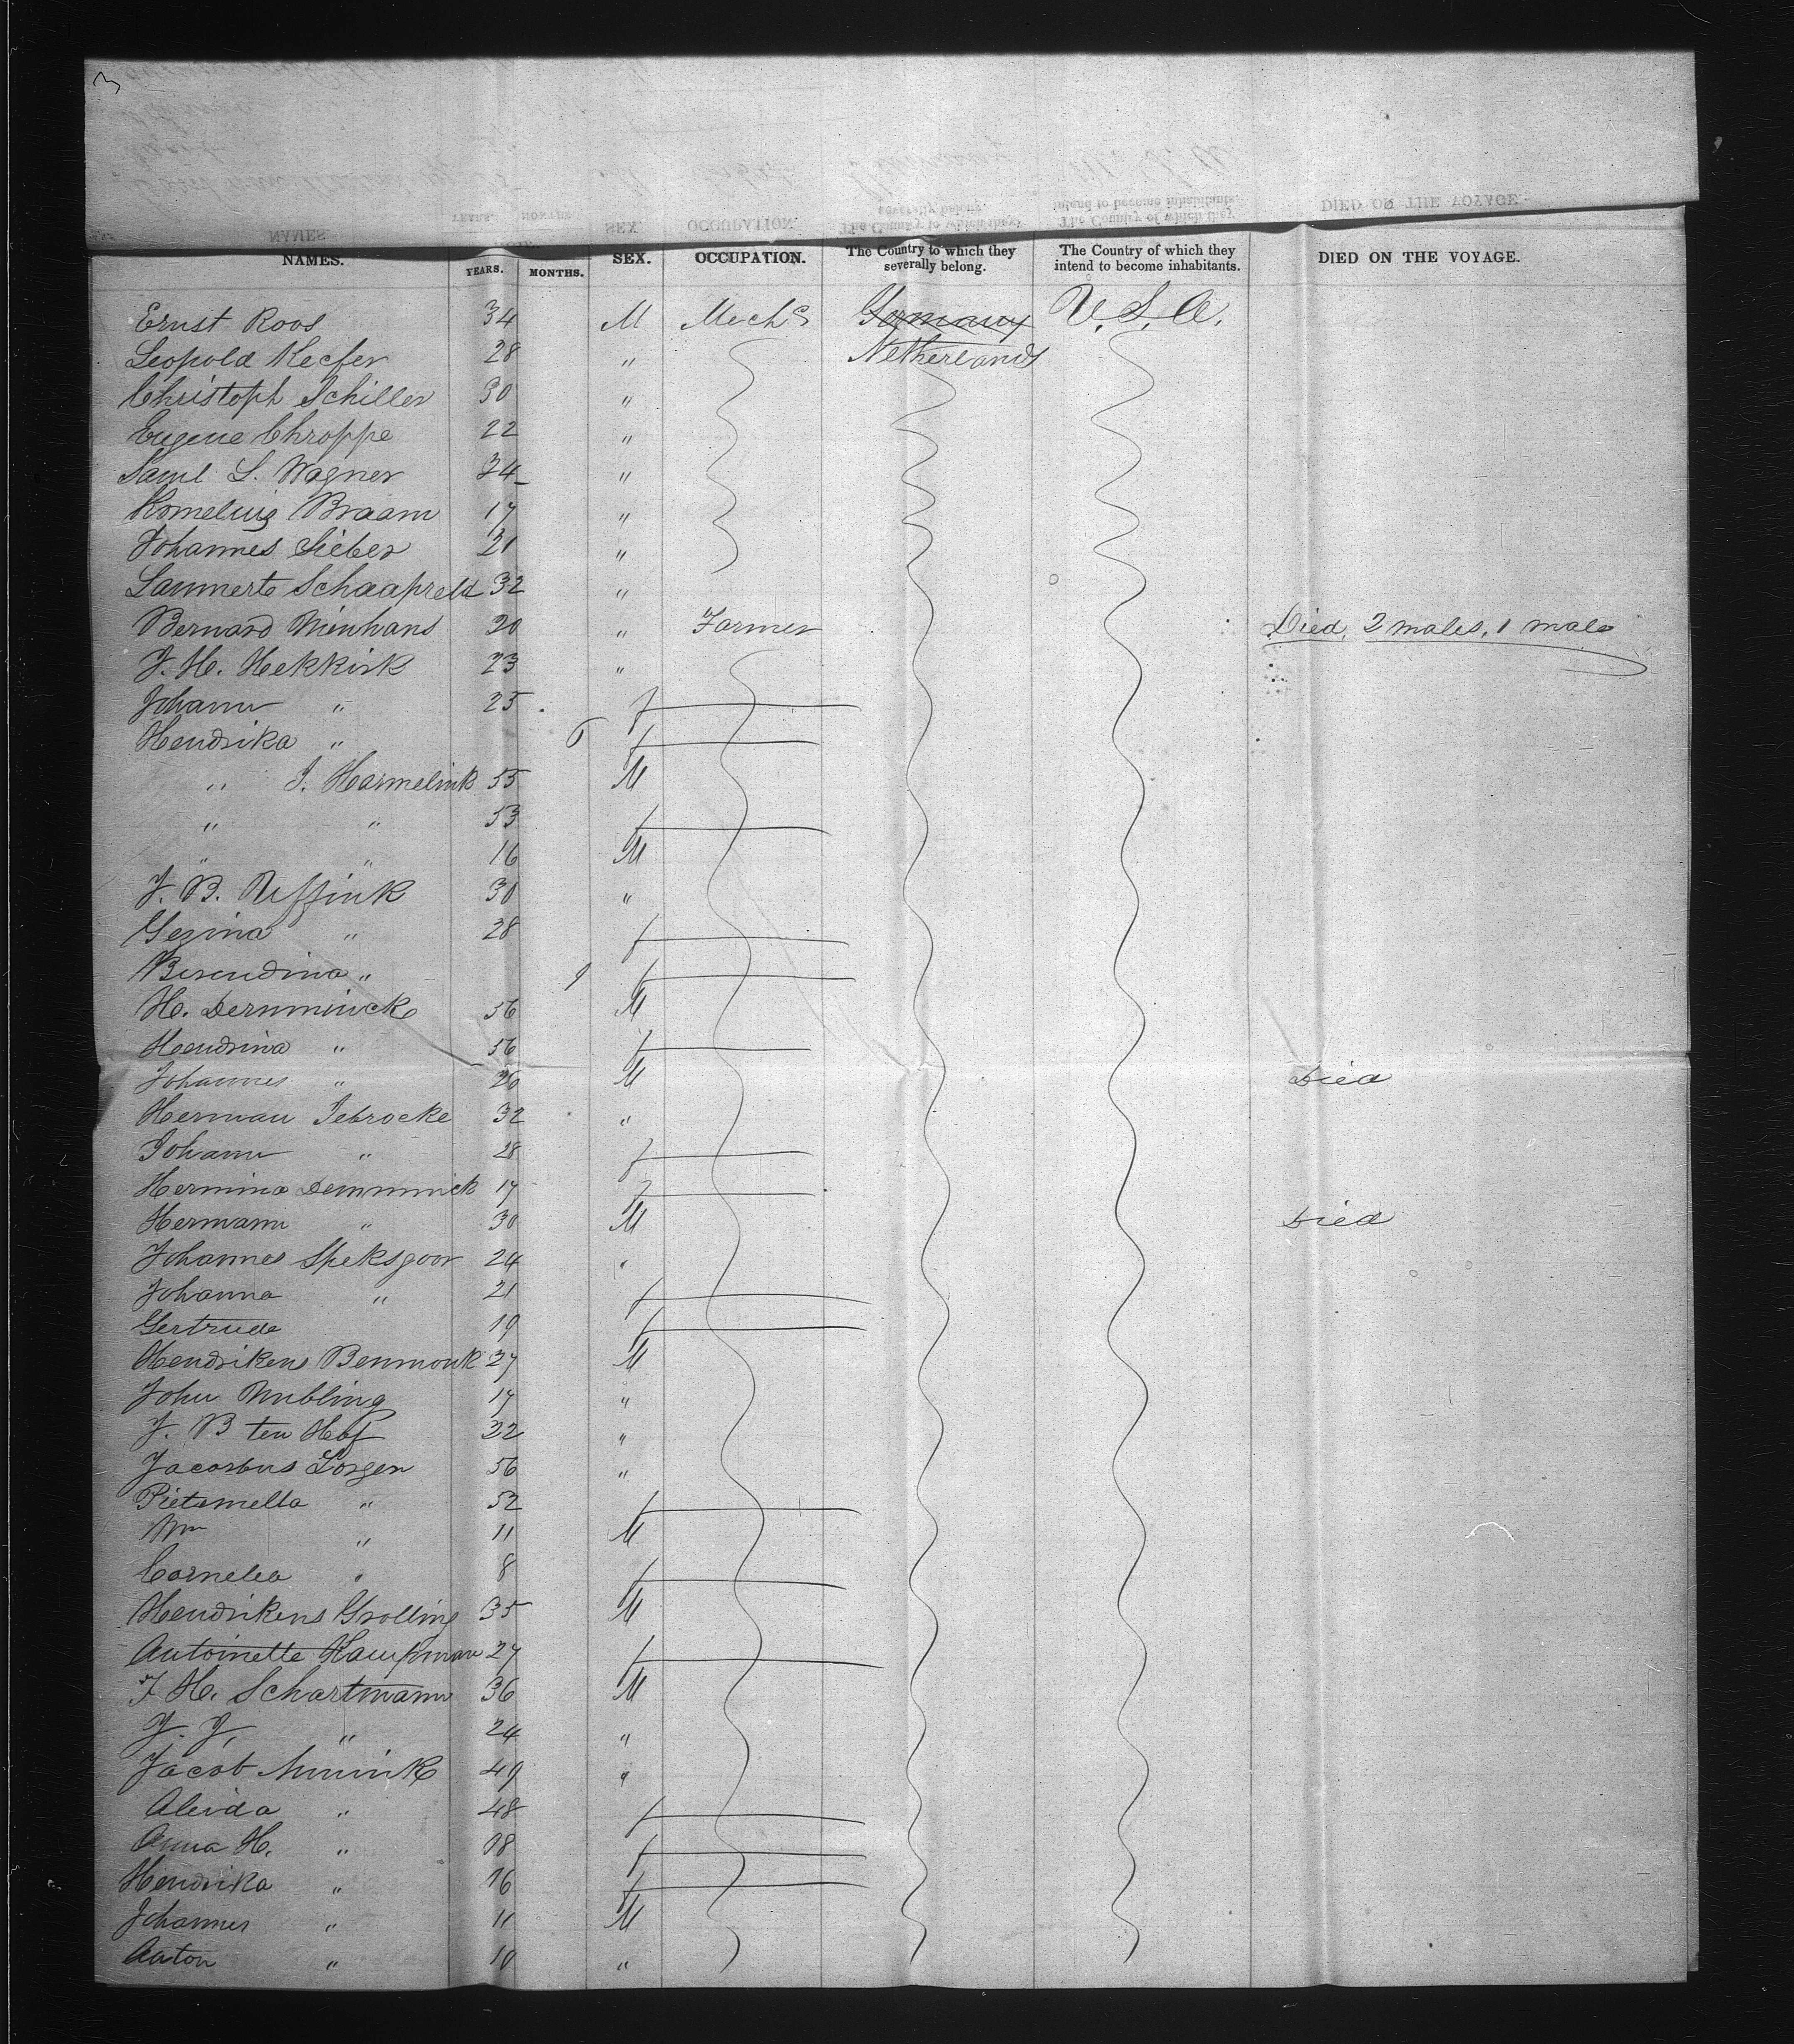 3
NAMES. YEARS. MONTHS. SEX. OCCUPATION. The Country to which they severally belong. The Country of which they intend to become inhabitants. DIED ON THE VOYAGE.
Ernst Roos 34 M Mechc Germany U.S.A.
Leopold Keefer 28 " Netherlands
Christoph Schiller 30 "
Eugene Chroppe 22 "
Saml S. Wagner 24 "
Kornelius Braam 17 "
Johannes Sieber 21 "
Lammerts Schaapreld 32 "
Bernard Wienhans 20 " Farmer Died, 2 males, 1 male
J. H. Hekkink 23 "
Johann " 25 f
Hendrika " 6 f
" J. Harmelink 55 M
" " 53 f
" " 16 M
J. B. Uffink 30 "
Gezina " 28 f
Berendina " 9 f
H. Demminck 56 M
Hendrina " 56 f
Johannes " 26 M Died
Herman Jebrocke 32 "
Johann " 28 f
Hermina Demminck 17 f
Hermann " 30 M Died
Johannes Speksgoor 24 "
Johanna " 21 f
Gertrude 19 f
Hendrikens Benmonk 27 M
John Wubling 17 "
J. B ten Hof 22 "
Jacorbus Lorgen 56 "
Pietemella " 52 f
Wm " 11 M
Cornelea " 8 f
Hendrikens Grolling 35 M
Antoinette Kaufman 27 f
J H. Schartmann 36 M
J. J. " 24 "
Jacob 49 "
Aleida " 48 f
Anna H. " 18 f
Hendrika " 16 f
Johannes " 11 M
Anton " 10 "